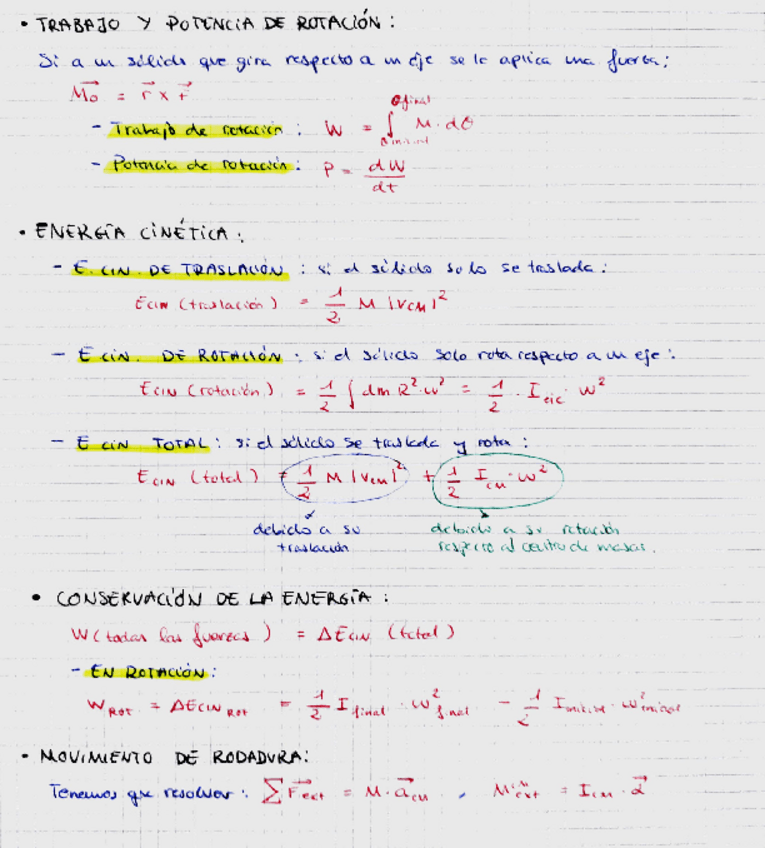 • TRABAJO Y POTENCIA DE ROTACIÓN:
Si a un sólido que gira respecto a un eje se le aplica una fuerza:
M⃗o = r⃗ x F⃗
- Trabajo de rotación: W = ∫_{θinicial}^{θfinal} M·dθ
- Potencia de rotación: P = dW/dt
• ENERGÍA CINÉTICA:
- E. CIN. DE TRASLACIÓN: si el sólido solo se traslada:
ECIN (traslación) = 1/2 M |VCM|²
- E CIN. DE ROTACIÓN: si el sólido solo rota respecto a un eje:
ECIN (rotación) = 1/2 ∫ dm R²·ω² = 1/2 · I_eje · ω²
- E CIN TOTAL: si el sólido se traslada y rota:
ECIN (total) = 1/2 M |VCM|² + 1/2 I_CM·ω²
debido a su traslación
debido a su rotación
respecto al centro de masas.
• CONSERVACIÓN DE LA ENERGÍA:
W (todas las fuerzas) = ΔECIN (total)
- EN ROTACIÓN:
W_ROT = ΔECIN_ROT = 1/2 I_final · ω²_final - 1/2 I_inicial · ω²_inicial
• MOVIMIENTO DE RODADURA:
Tenemos que resolver: ΣF⃗ext = M·a⃗CM , M^CM_ext = I_CM · α⃗